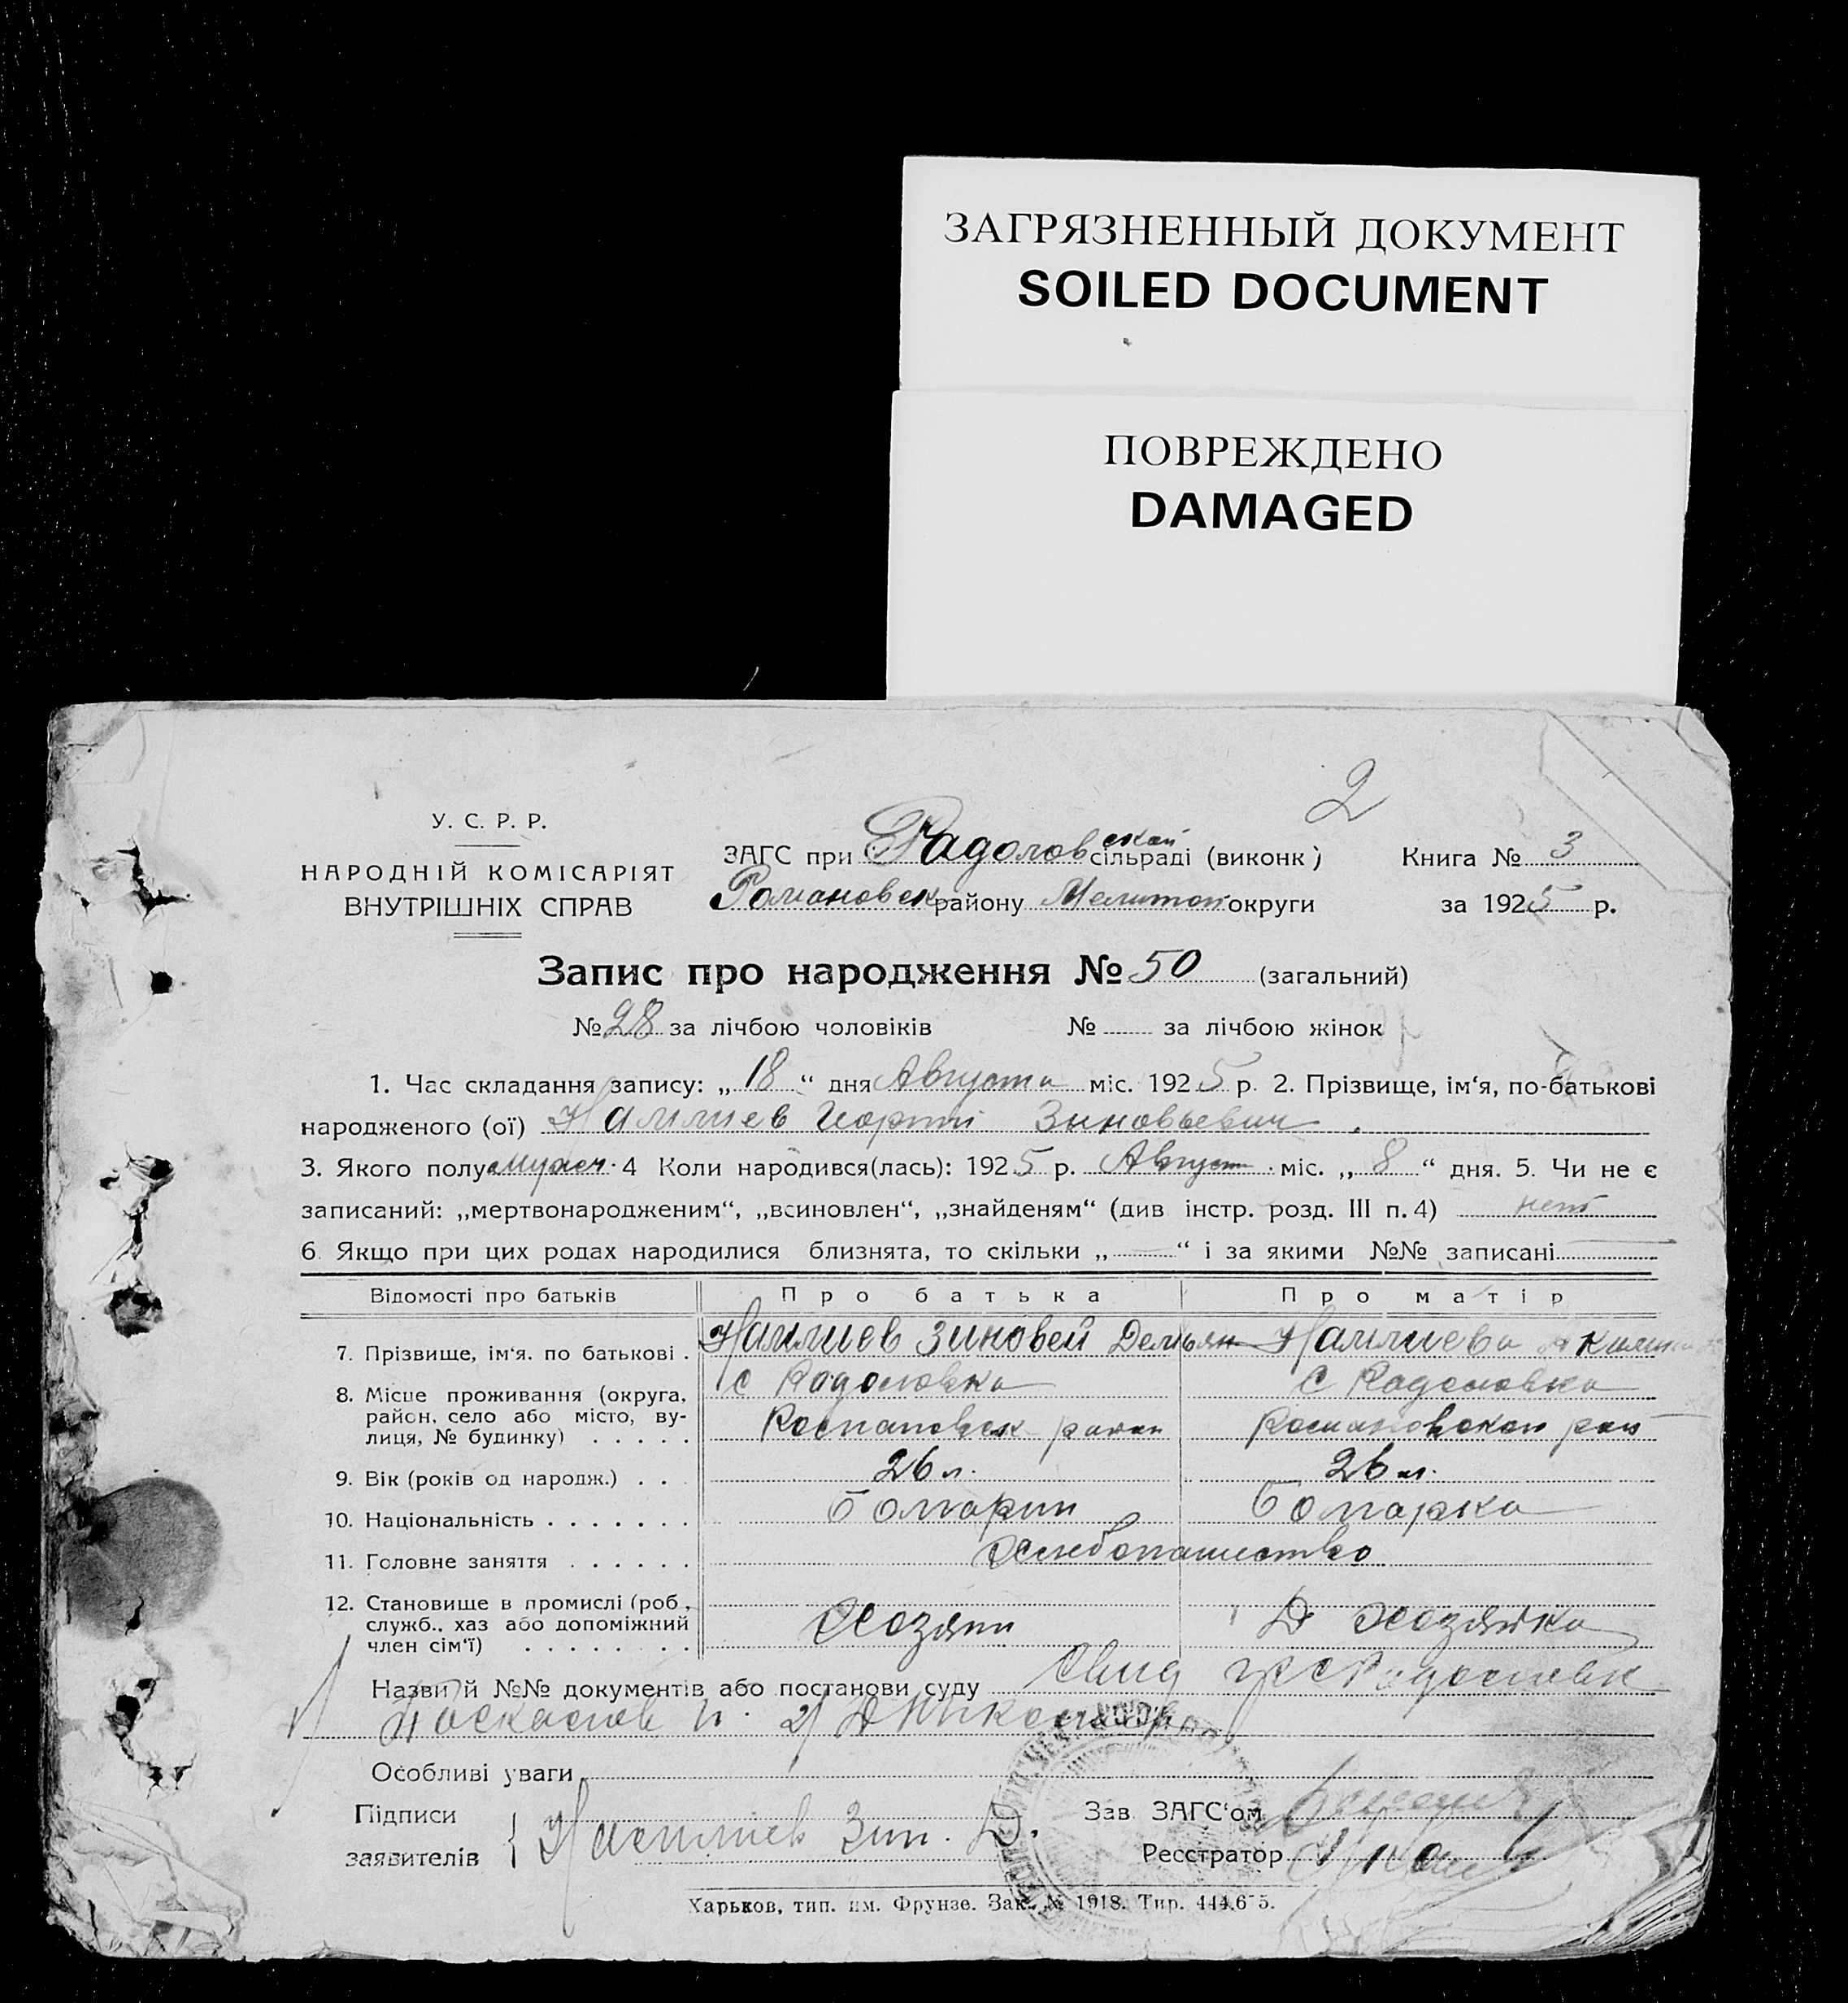 ЗАГРЯЗНЕННЫЙ ДОКУМЕНТ
SOILED DOCUMENT
ПОВРЕЖДЕНО
DAMAGED
2
У. С. Р. Р.
НАРОДНІЙ КОМІСАРІЯТ
ВНУТРІШНІХ СПРАВ
ЗАГС при Радоловской сільраді (виконк) Книга № 3
Романовск району Мелитоп округи за 1925 р.
Запис про народження № 50 (загальний)
№ 28 за лічбою чоловіків № за лічбою жінок
1. Час складання запису: „18“ дня Августа міс. 1925 р. 2. Прізвище, ім‘я, по-батькові
народженого (ої) Зиновьевич
3. Якого полу мужск. 4 Коли народився(лась): 1925 р. Август міс. „8“ дня. 5. Чи не є
записаний: „мертвонародженим“, „всиновлен“, „знайденям“ (див інстр. розд. III п. 4) нет
6. Якщо при цих родах народилися близнята, то скільки „ — “ і за якими №№ записані —
Відомості про батьків Про батька Про матір
7. Прізвище, ім‘я. по батькові . Зиновей Демьян
8. Місце проживання (округа, район, село або місто, вулиця, № будинку) с Радоловка с Радоловка
Романовск район Романовской рай
9. Вік (років од народж.) . . . 26 л. 26 л.
10. Національність . . . . . . . Болгарин Болгарка
11. Головне заняття . . . . . . Хлебопашество
12. Становище в промислі (роб., служб., хаз або допоміжний член сім‘ї) . . . . . . . . Хозяин Д хозяйка
Назви й №№ документів або постанови суду
Особливі уваги
Підписи заявителів { Зин. Д.
Зав ЗАГС‘ом
Реєстратор
Харьков, тип. им. Фрунзе. Зак. № 1918. Тир. 444.6-5.